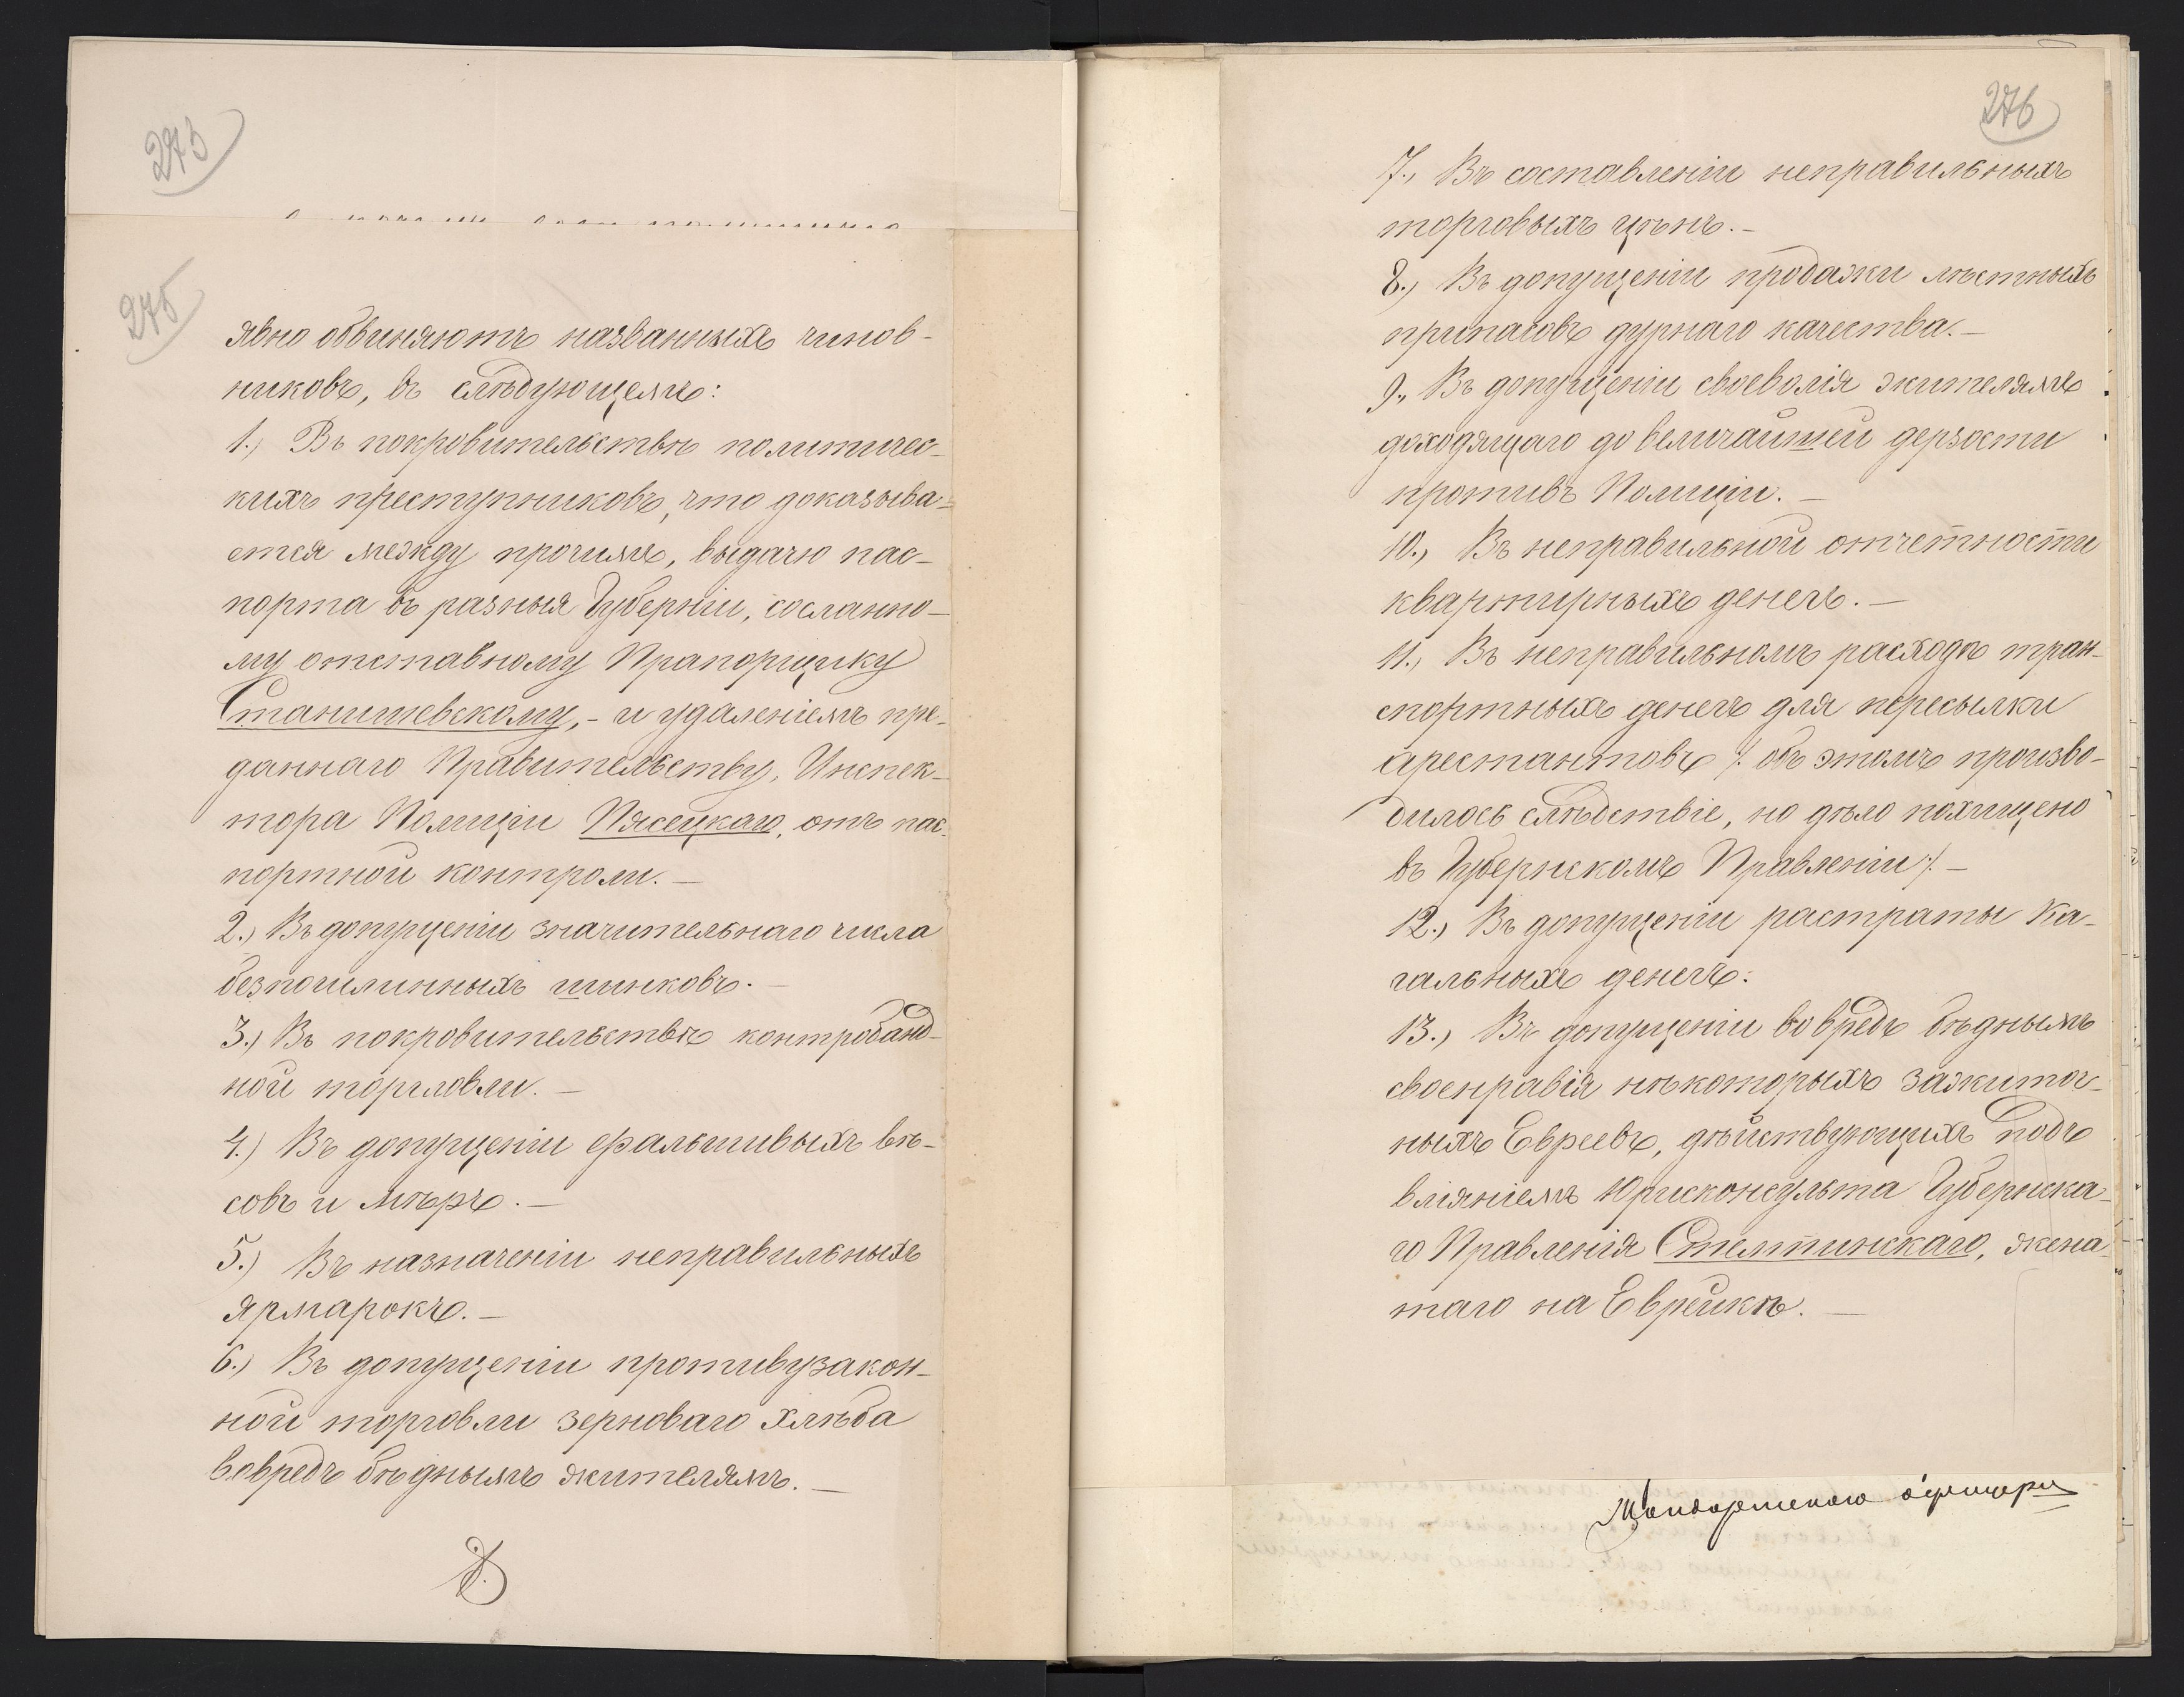 273
275
явно обвиняютъ названныхъ чинов-
никовъ, въ слѣдующемъ:
1.) Въ покровительствѣ политичес-
кихъ преступниковъ, что доказыва-
ется между прочимъ, выдачю пас-
порта въ разныя Губерніи, сосланно-
му отставному Прапорщику
Станишевскому, - и удаленіемъ пре-
даннаго Правительству, Инспек-
тора Полиціи Пясецкаго, отъ пас-
портной контроли. —
2.) Въ допущеніи значительнаго числа
безпошлинныхъ шинковъ. —
3.) Въ покровительствѣ контробанд-
ной торговли. —
4.) Въ допущеніи фальшивыхъ вѣ-
совъ и мѣръ. —
5.) Въ назначеніи неправильныхъ
ярмарокъ. —
6.) Въ допущеніи противузакон-
ной торговли зерноваго хлѣба
вовредъ бѣднымъ жителямъ. —
276
7., Въ составленіи неправильныхъ
торговыхъ цѣнъ. —
8.) Въ допущеніи продажи мѣстныхъ
припасовъ дурнаго качества. —
9., Въ допущеніи своеволія жителямъ
доходящаго до величайшей дерзости
противъ Полиціи. —
10., Въ неправильной отчетности
квартирныхъ денегъ. —
11., Въ неправильномъ расходѣ тран-
спортныхъ денегъ для пересылки
арестантовъ /. объ этомъ произво-
дилось слѣдствіе, но дѣло похищено
въ Губернскомъ Правленіи ./. —
12.) Въ допущеніи растраты Ка-
гальныхъ денегъ.
13.) Въ допущеніи вовредъ бѣднымъ
своенравія нѣкоторыхъ зажиточ-
ныхъ Евреевъ, дѣйствующихъ подъ
вліяніемъ Юрисконсульта Губернска-
го Правленія Стемпинскаго, жена-
таго на Еврейкѣ. —
Жандармского офицера